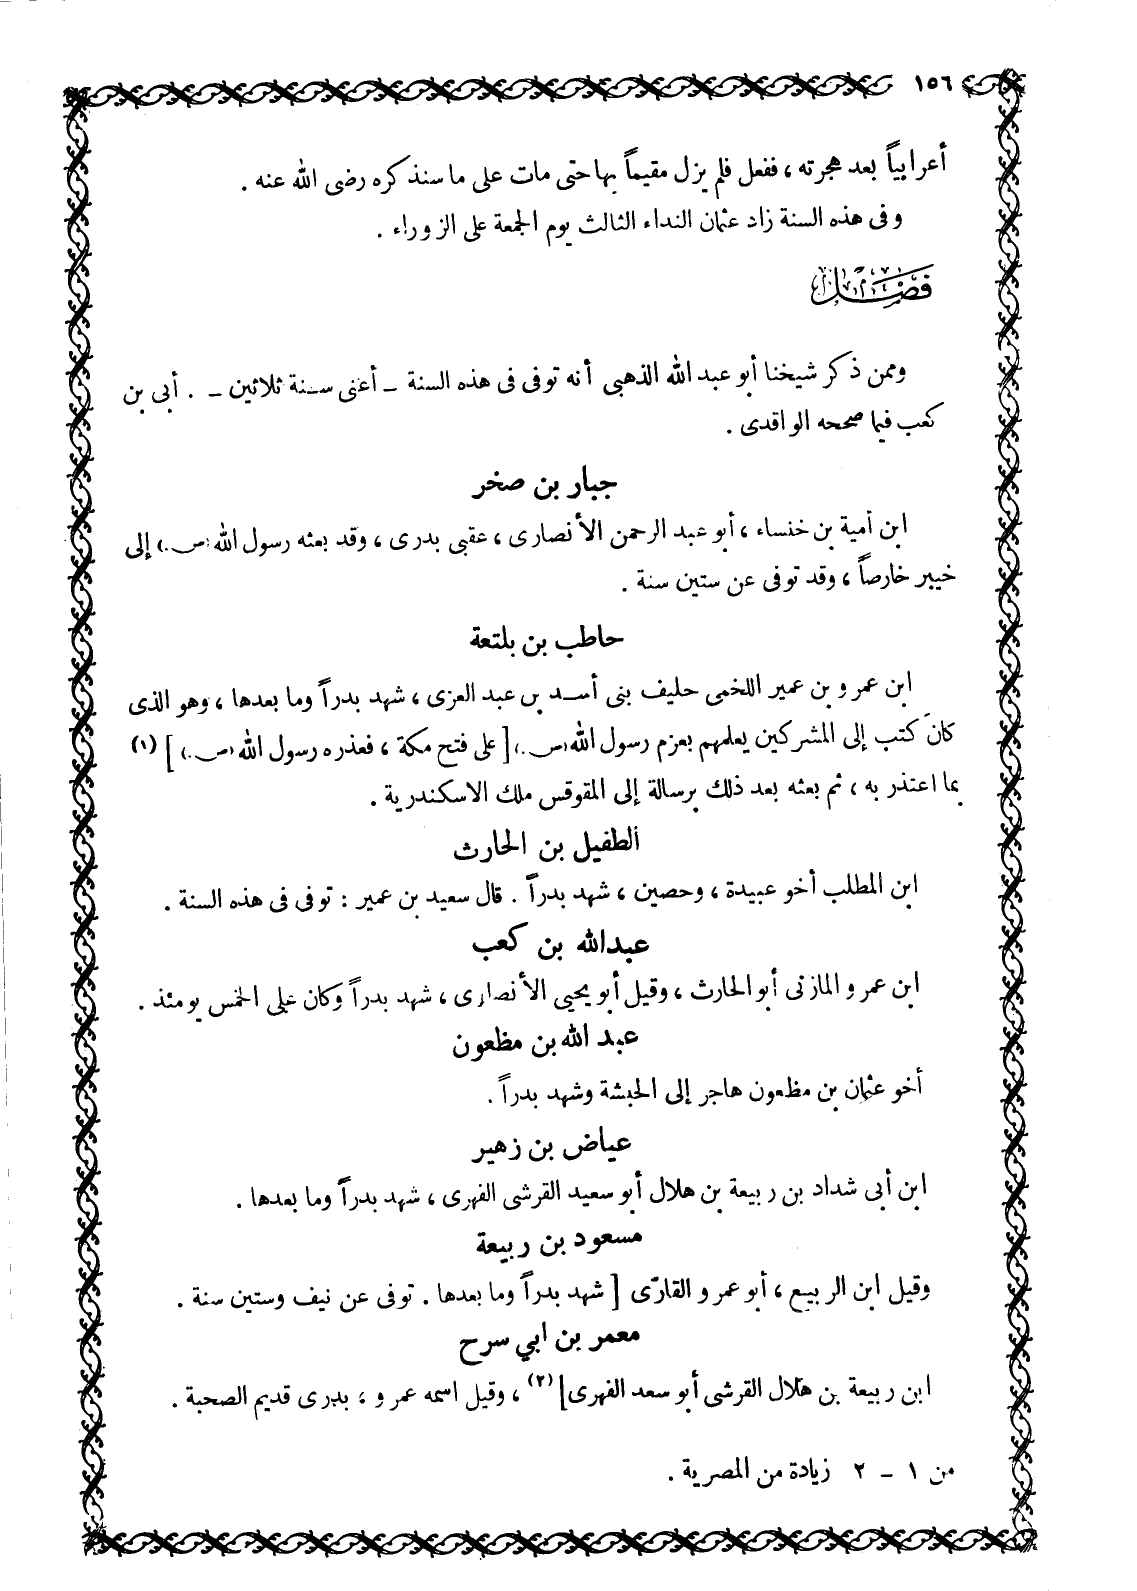 ١٥٦
أعرابياً بعد هجرته ، ففعل فلم يزل مقيماً بها حتى مات على ما سنذكره رضى الله عنه .
وفى هذه السنة زاد عثمان النداء الثالث يوم الجمعة على الزوراء .
فصل
وممن ذكر شيخنا أبو عبد الله الذهبى أنه توفى فى هذه السنة – أعنى سنة ثلاثين – . أبى بن
كعب فيما صححه الواقدى .
جبار بن صخر
ابن أمية بن خنساء ، أبو عبد الرحمن الأنصارى ، عقبى بدرى ، وقد بعثه رسول الله (ص.) إلى
خيبر خارصاً ، وقد توفى عن ستين سنة .
حاطب بن بلتعة
ابن عمرو بن عمير اللخمى حليف بنى أسد بن عبد العزى ، شهد بدراً وما بعدها ، وهو الذى
كان كتب إلى المشركين يعلمهم بعزم رسول الله (ص.) [ على فتح مكة ، فعذره رسول الله (ص.) ] (١)
بما اعتذر به ، ثم بعثه بعد ذلك برسالة إلى المقوقس ملك الاسكندرية .
الطفيل بن الحارث
ابن المطلب أخو عبيدة ، وحصين ، شهد بدراً . قال سعيد بن عمير : توفى فى هذه السنة .
عبدالله بن كعب
ابن عمرو المازنى أبو الحارث ، وقيل أبو يحيى الأنصارى ، شهد بدراً وكان على الخمس يومئذ .
عبد الله بن مظعون
أخو عثمان بن مظعون هاجر إلى الحبشة وشهد بدراً .
عياض بن زهير
ابن أبى شداد بن ربيعة بن هلال أبو سعيد القرشى الفهرى ، شهد بدراً وما بعدها .
مسعود بن ربيعة
وقيل ابن الربيع ، أبو عمرو القارّى [ شهد بدراً وما بعدها . توفى عن نيف وستين سنة .
معمر بن ابي سرح
ابن ربيعة بن هلال القرشى أبو سعد الفهرى] (٢) ، وقيل اسمه عمرو ، بدرى قديم الصحبة .
من ١ – ٢ زيادة من المصرية .